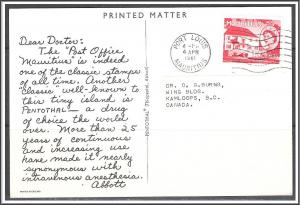 PRINTED MATTER
Dear Doctor:
The "Post Office
Mauritius" is indeed
one of the classic stamps
of all time. Another
"classic" well-known to
this tiny island is
PENTOTHAL — a drug
of choice the world
over. More than 25
years of continuous
and increasing use
have made it nearly
synonymous with
intravenous anesthesia.
Abbott
PENTOTHAL
PORT LOUIS
4 APR
1961
MAURITIUS
DR. G. G. BURNS,
WING BLDG.
KAMLOOPS, B.C.
CANADA.